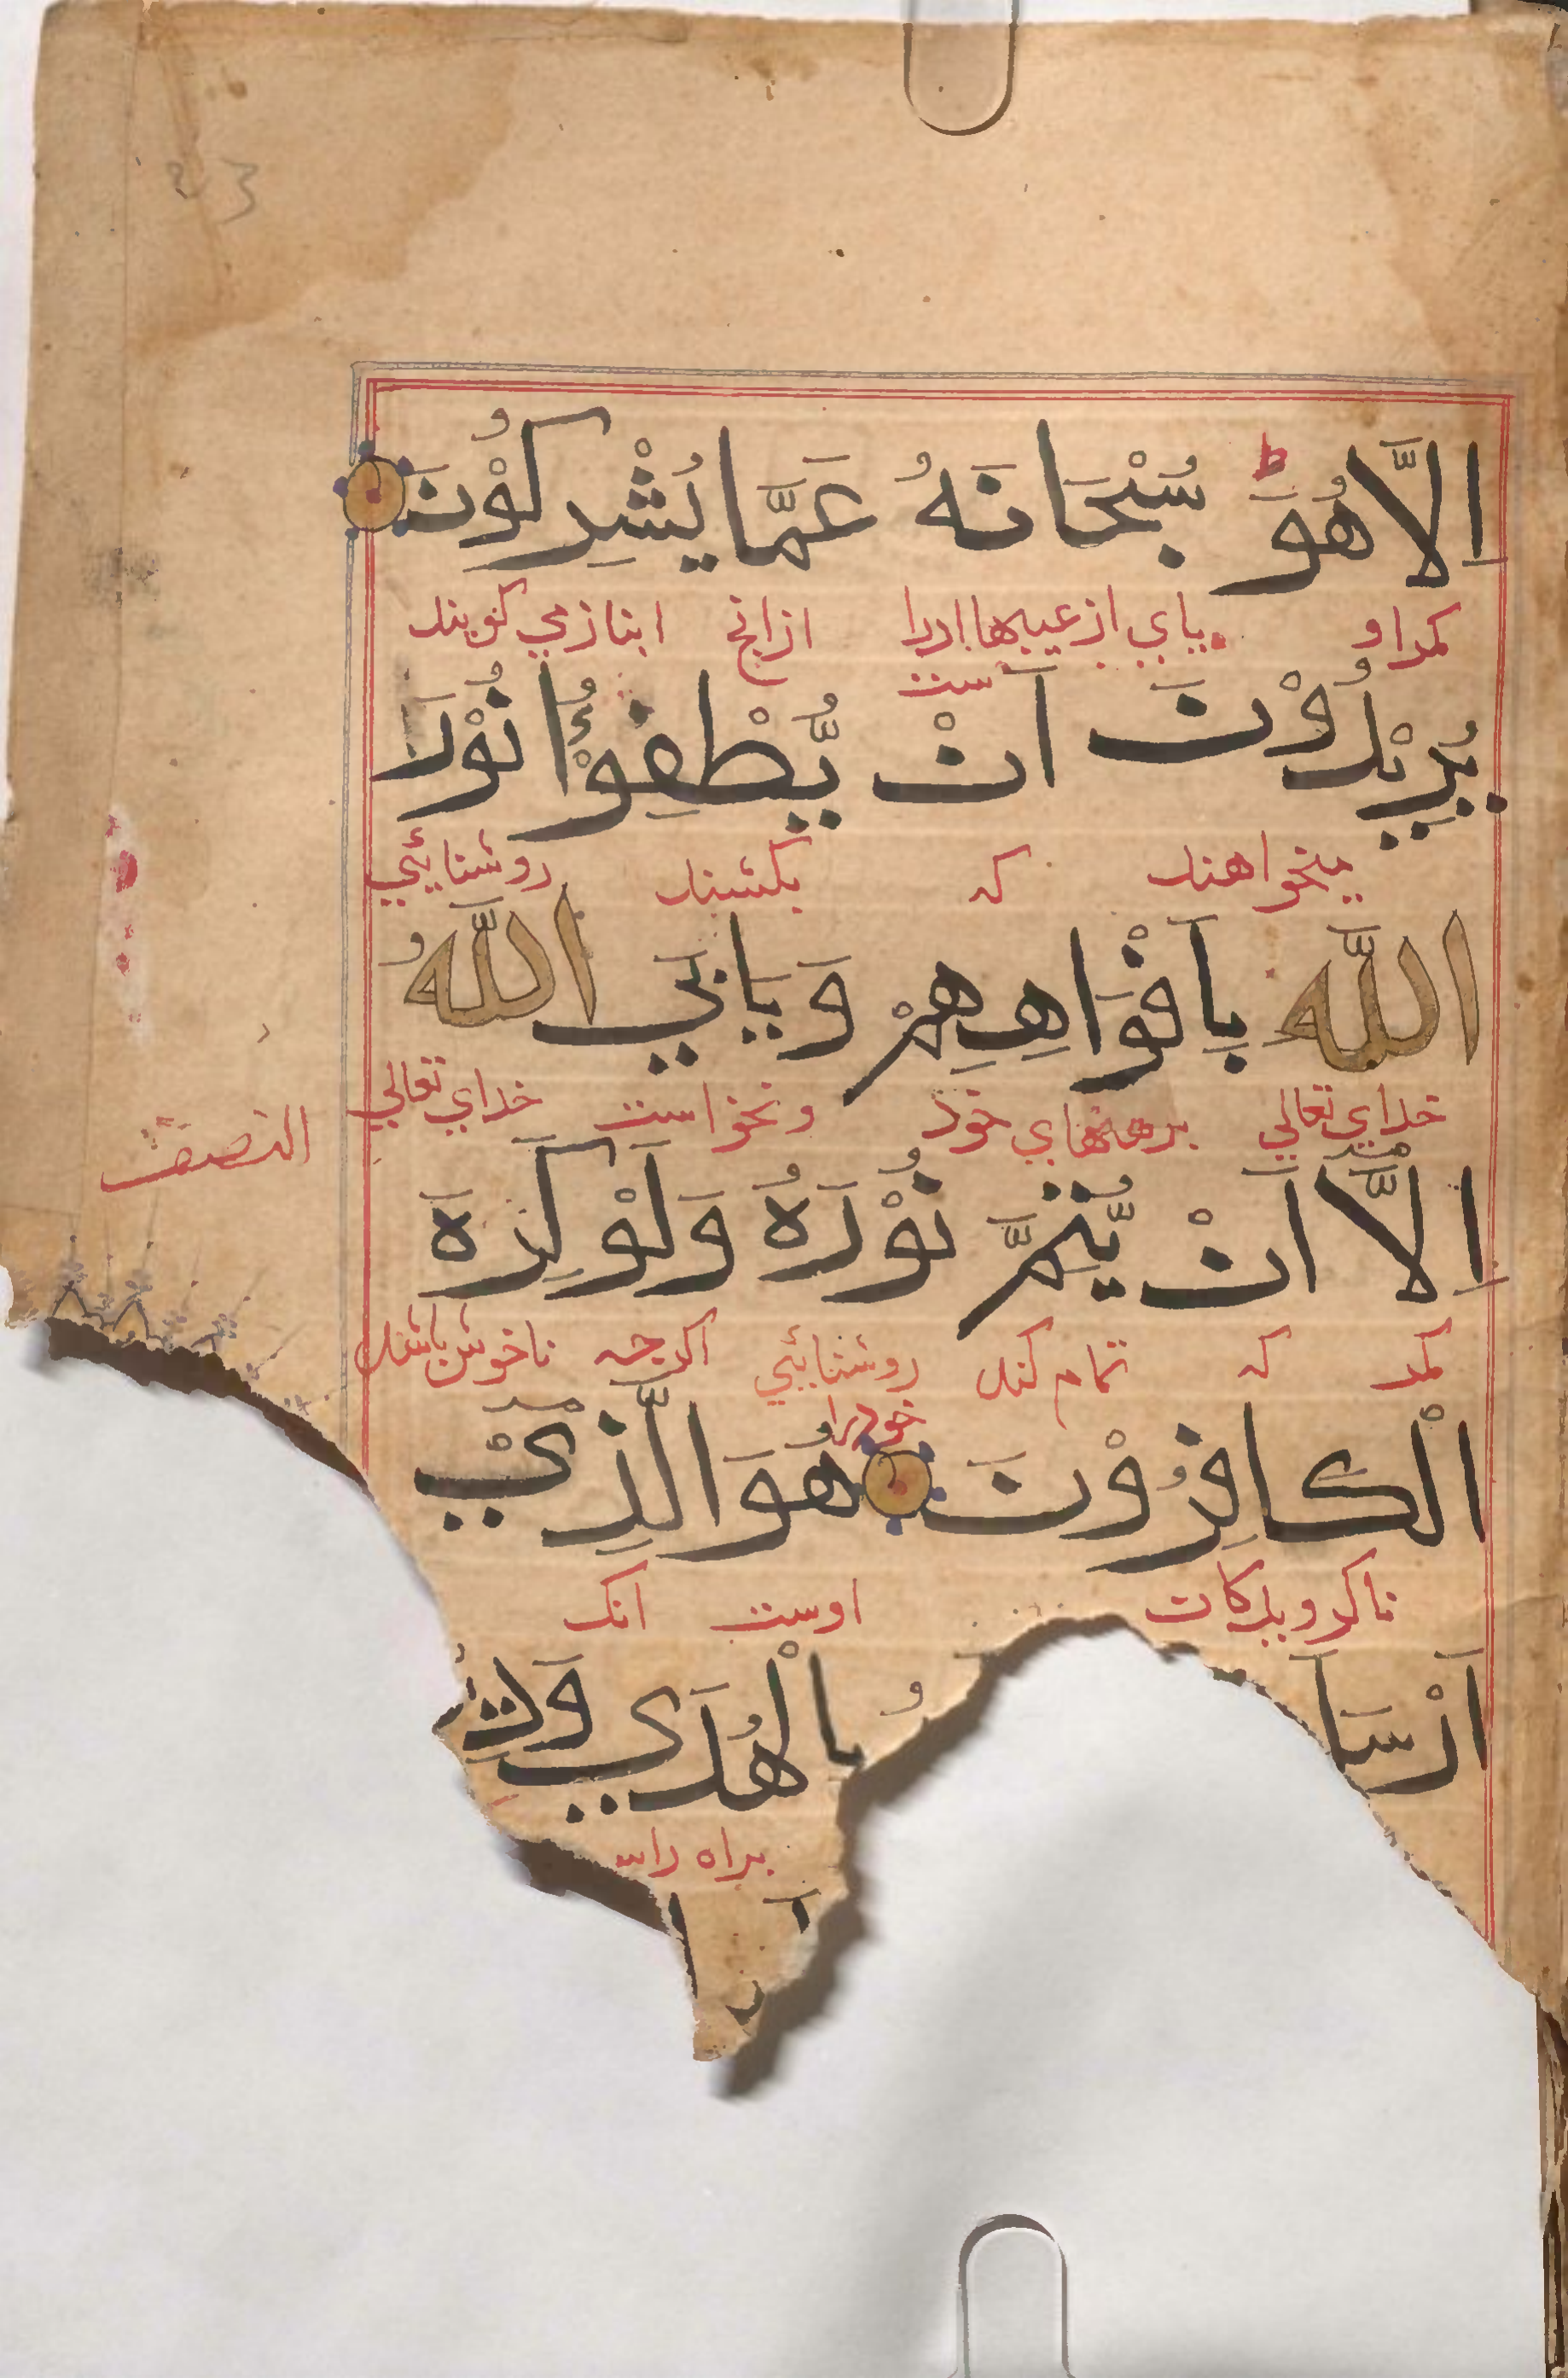 اِلَّا هُوَ ط سُبْحَانَهُ عَمَّا يُشْرِكُوْنَ
مكر او پاكي از عيبها اورا از انچ انباز مي كويند
ست
يُرِيْدُوْنَ اَنْ يُّطْفِؤُا نُوْرَ
ميخواهند كه بكشند روشنائيي
اللّٰه بِاَفْوَاهِهِمْ وَيَابَي اللّٰهُ
خداي تعالي بدهنهاي خود و نخواست خداي تعالي
النصف
اِلَّآ اَنْ يُّتِمَّ نُوْرَهُ وَلَوْ كَرِهَ
مكر كه تمام كند روشنائيي اكر چه ناخوش باشند
خود را
الْكَافِرُوْنَ هُوَ الَّذِيْٓ
ناكرويدكان اوست انك
اَرْسَلَ بِالْهُدَي وَدِ
براه راس